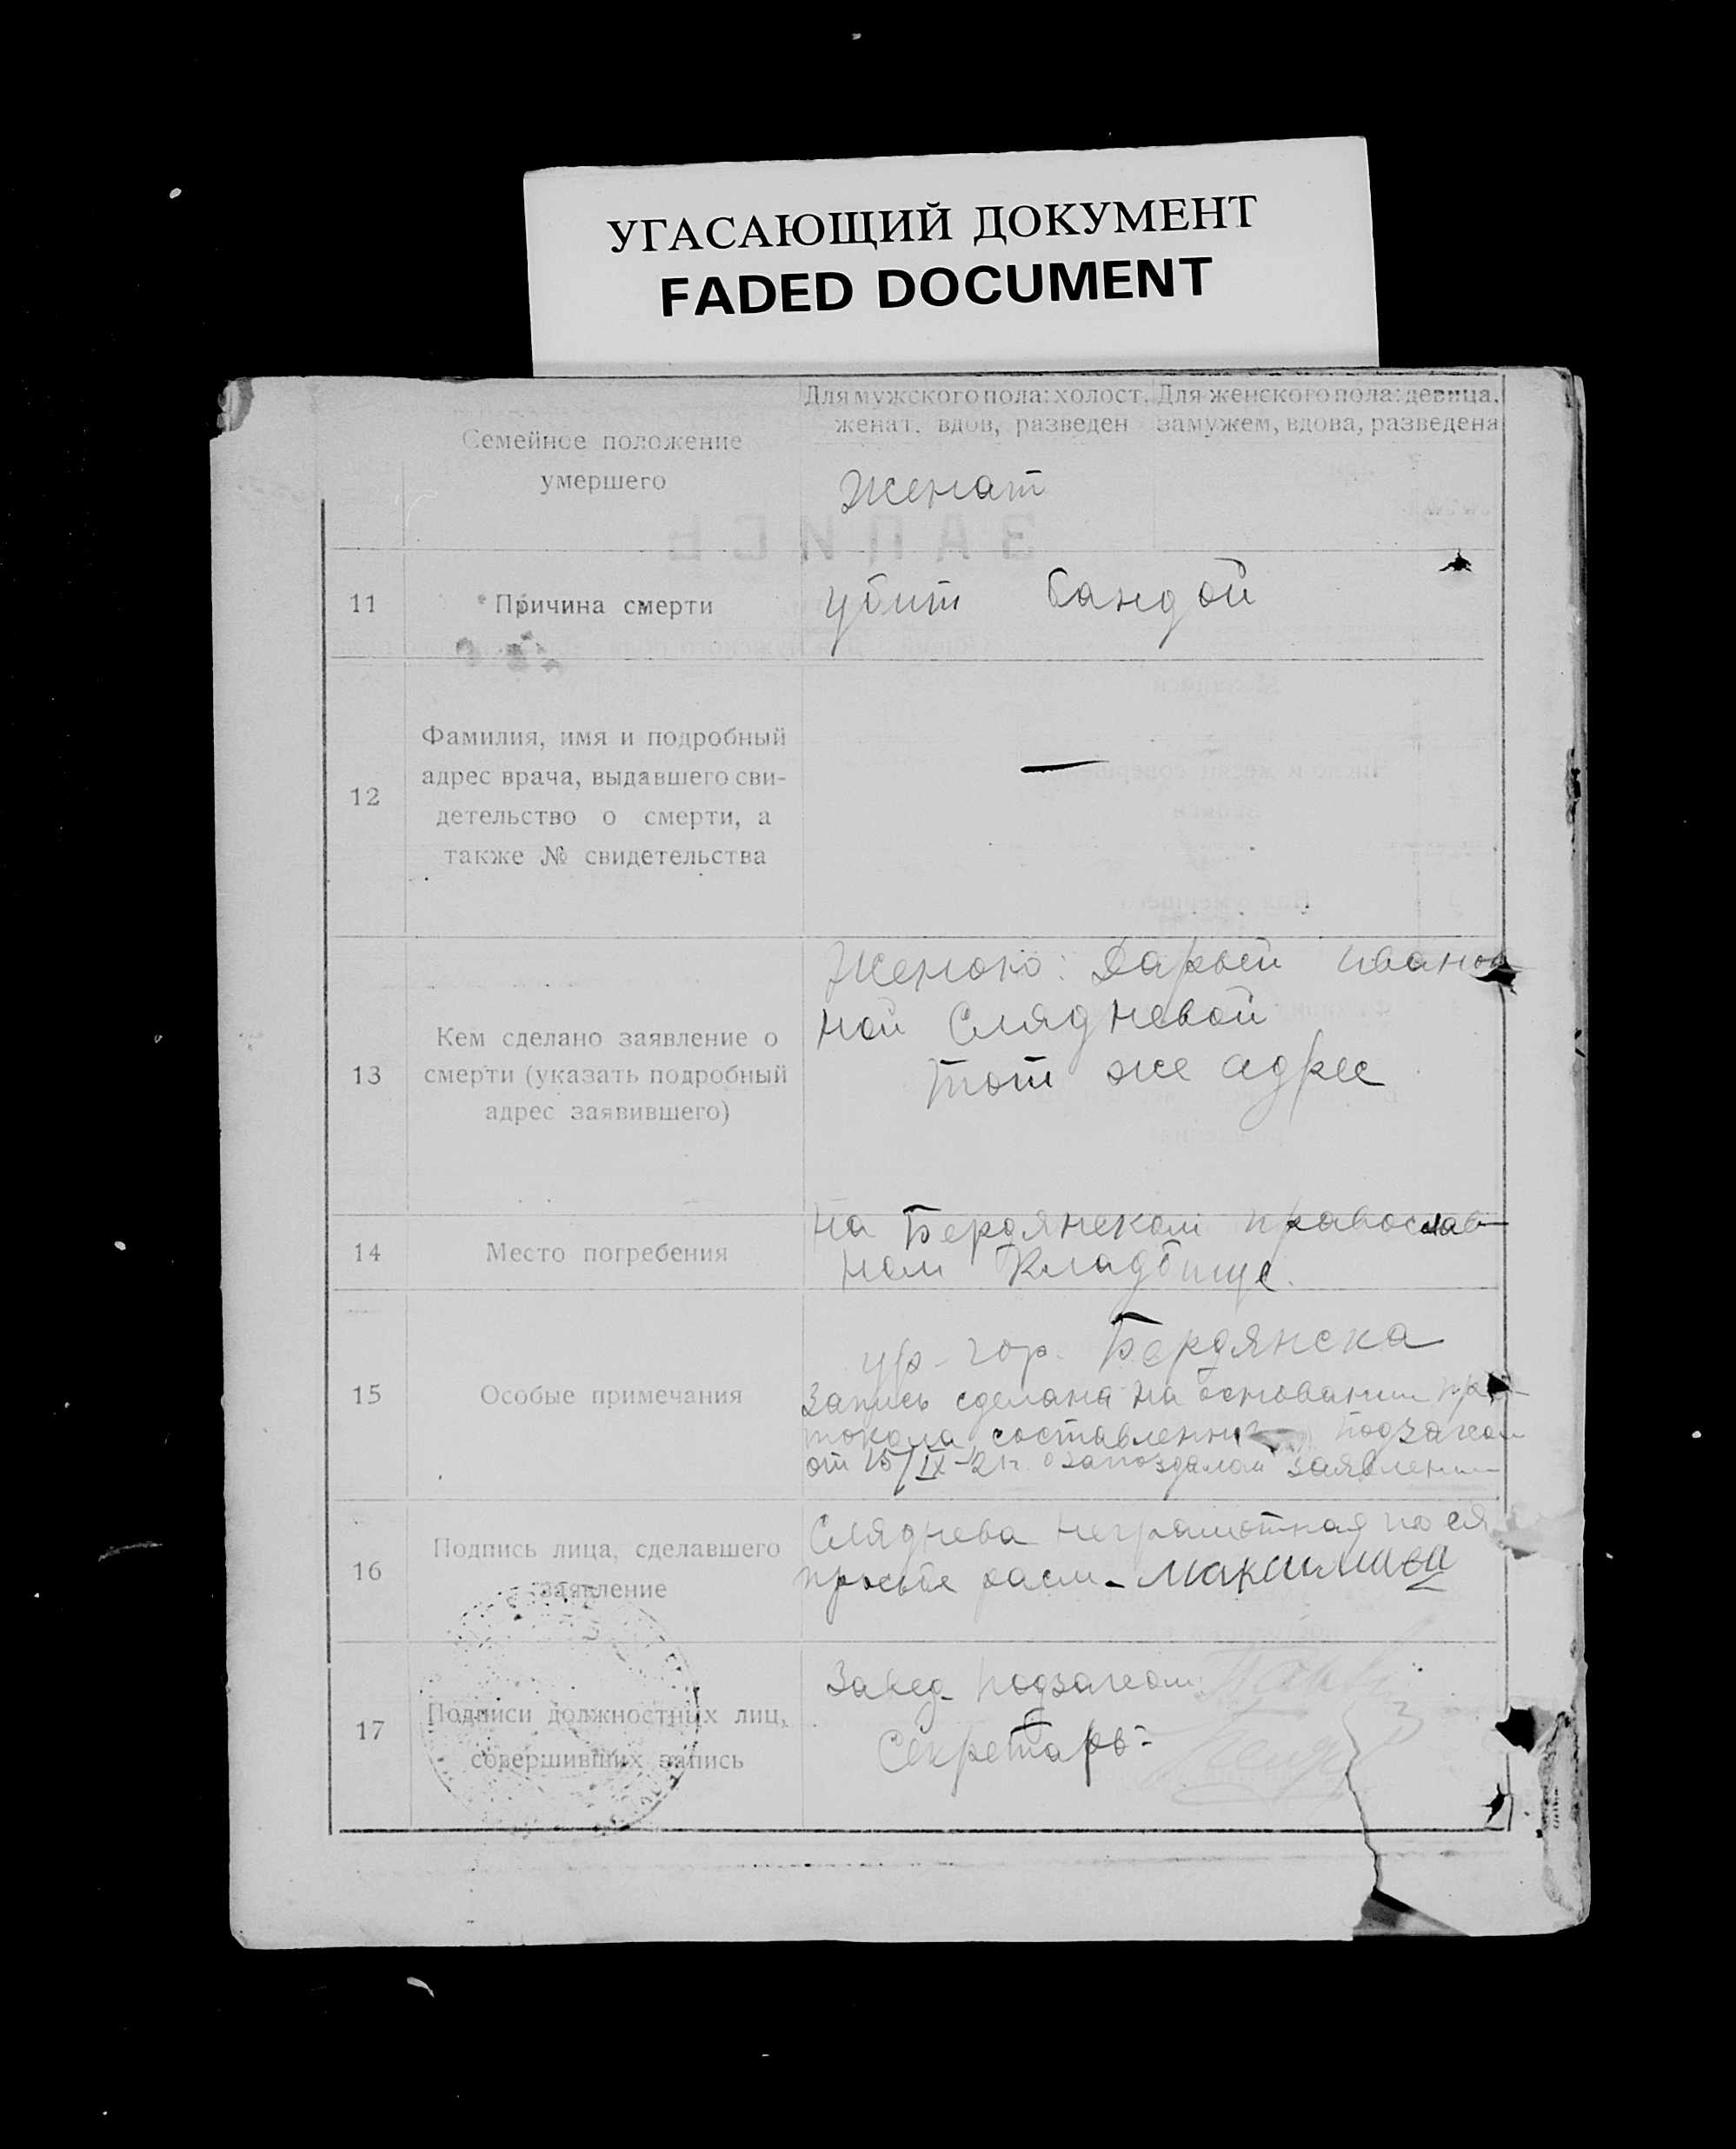 УГАСАЮЩИЙ ДОКУМЕНТ
FADED DOCUMENT
Семейное положение
умершего
Для мужского пола: холост,
женат, вдов, разведен
Для женского пола: девица,
замужем, вдова, разведена
Женат
ЗАПИСЬ
11
Причина смерти
убит бандой
12
Фамилия, имя и подробный
адрес врача, выдавшего сви-
детельство о смерти, а
также № свидетельства
—
13
Кем сделано заявление о
смерти (указать подробный
адрес заявившего)
Женою: Дарьей Иванов
ной Слядневой
тот же адрес
14
Место погребения
на Бердянском православ-
ном Кладбище.
15
Особые примечания
ур. гор. Бердянска
Запись сделана на основании про-
токола составленн подзагсом
от 15/IX-21г. о запоздалом заявлении
16
Подпись лица, сделавшего
заявление
Сляднева неграмотная по ея
просьбе расп-
17
Подписи должностных лиц,
совершивших запись
Завед. подзагсом
Секретарь-